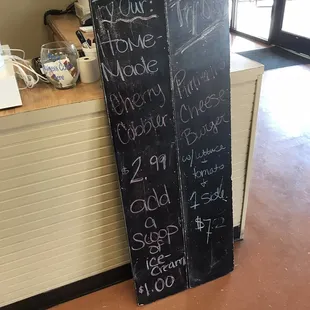 Your:
Home-
Made
Cherry
Cobbler
$2.99
add
a
Scoop
of
ice-
cream
$1.00
Try
Cheese
Burger
w/ lettuce
tomato
+
1 side
$7.